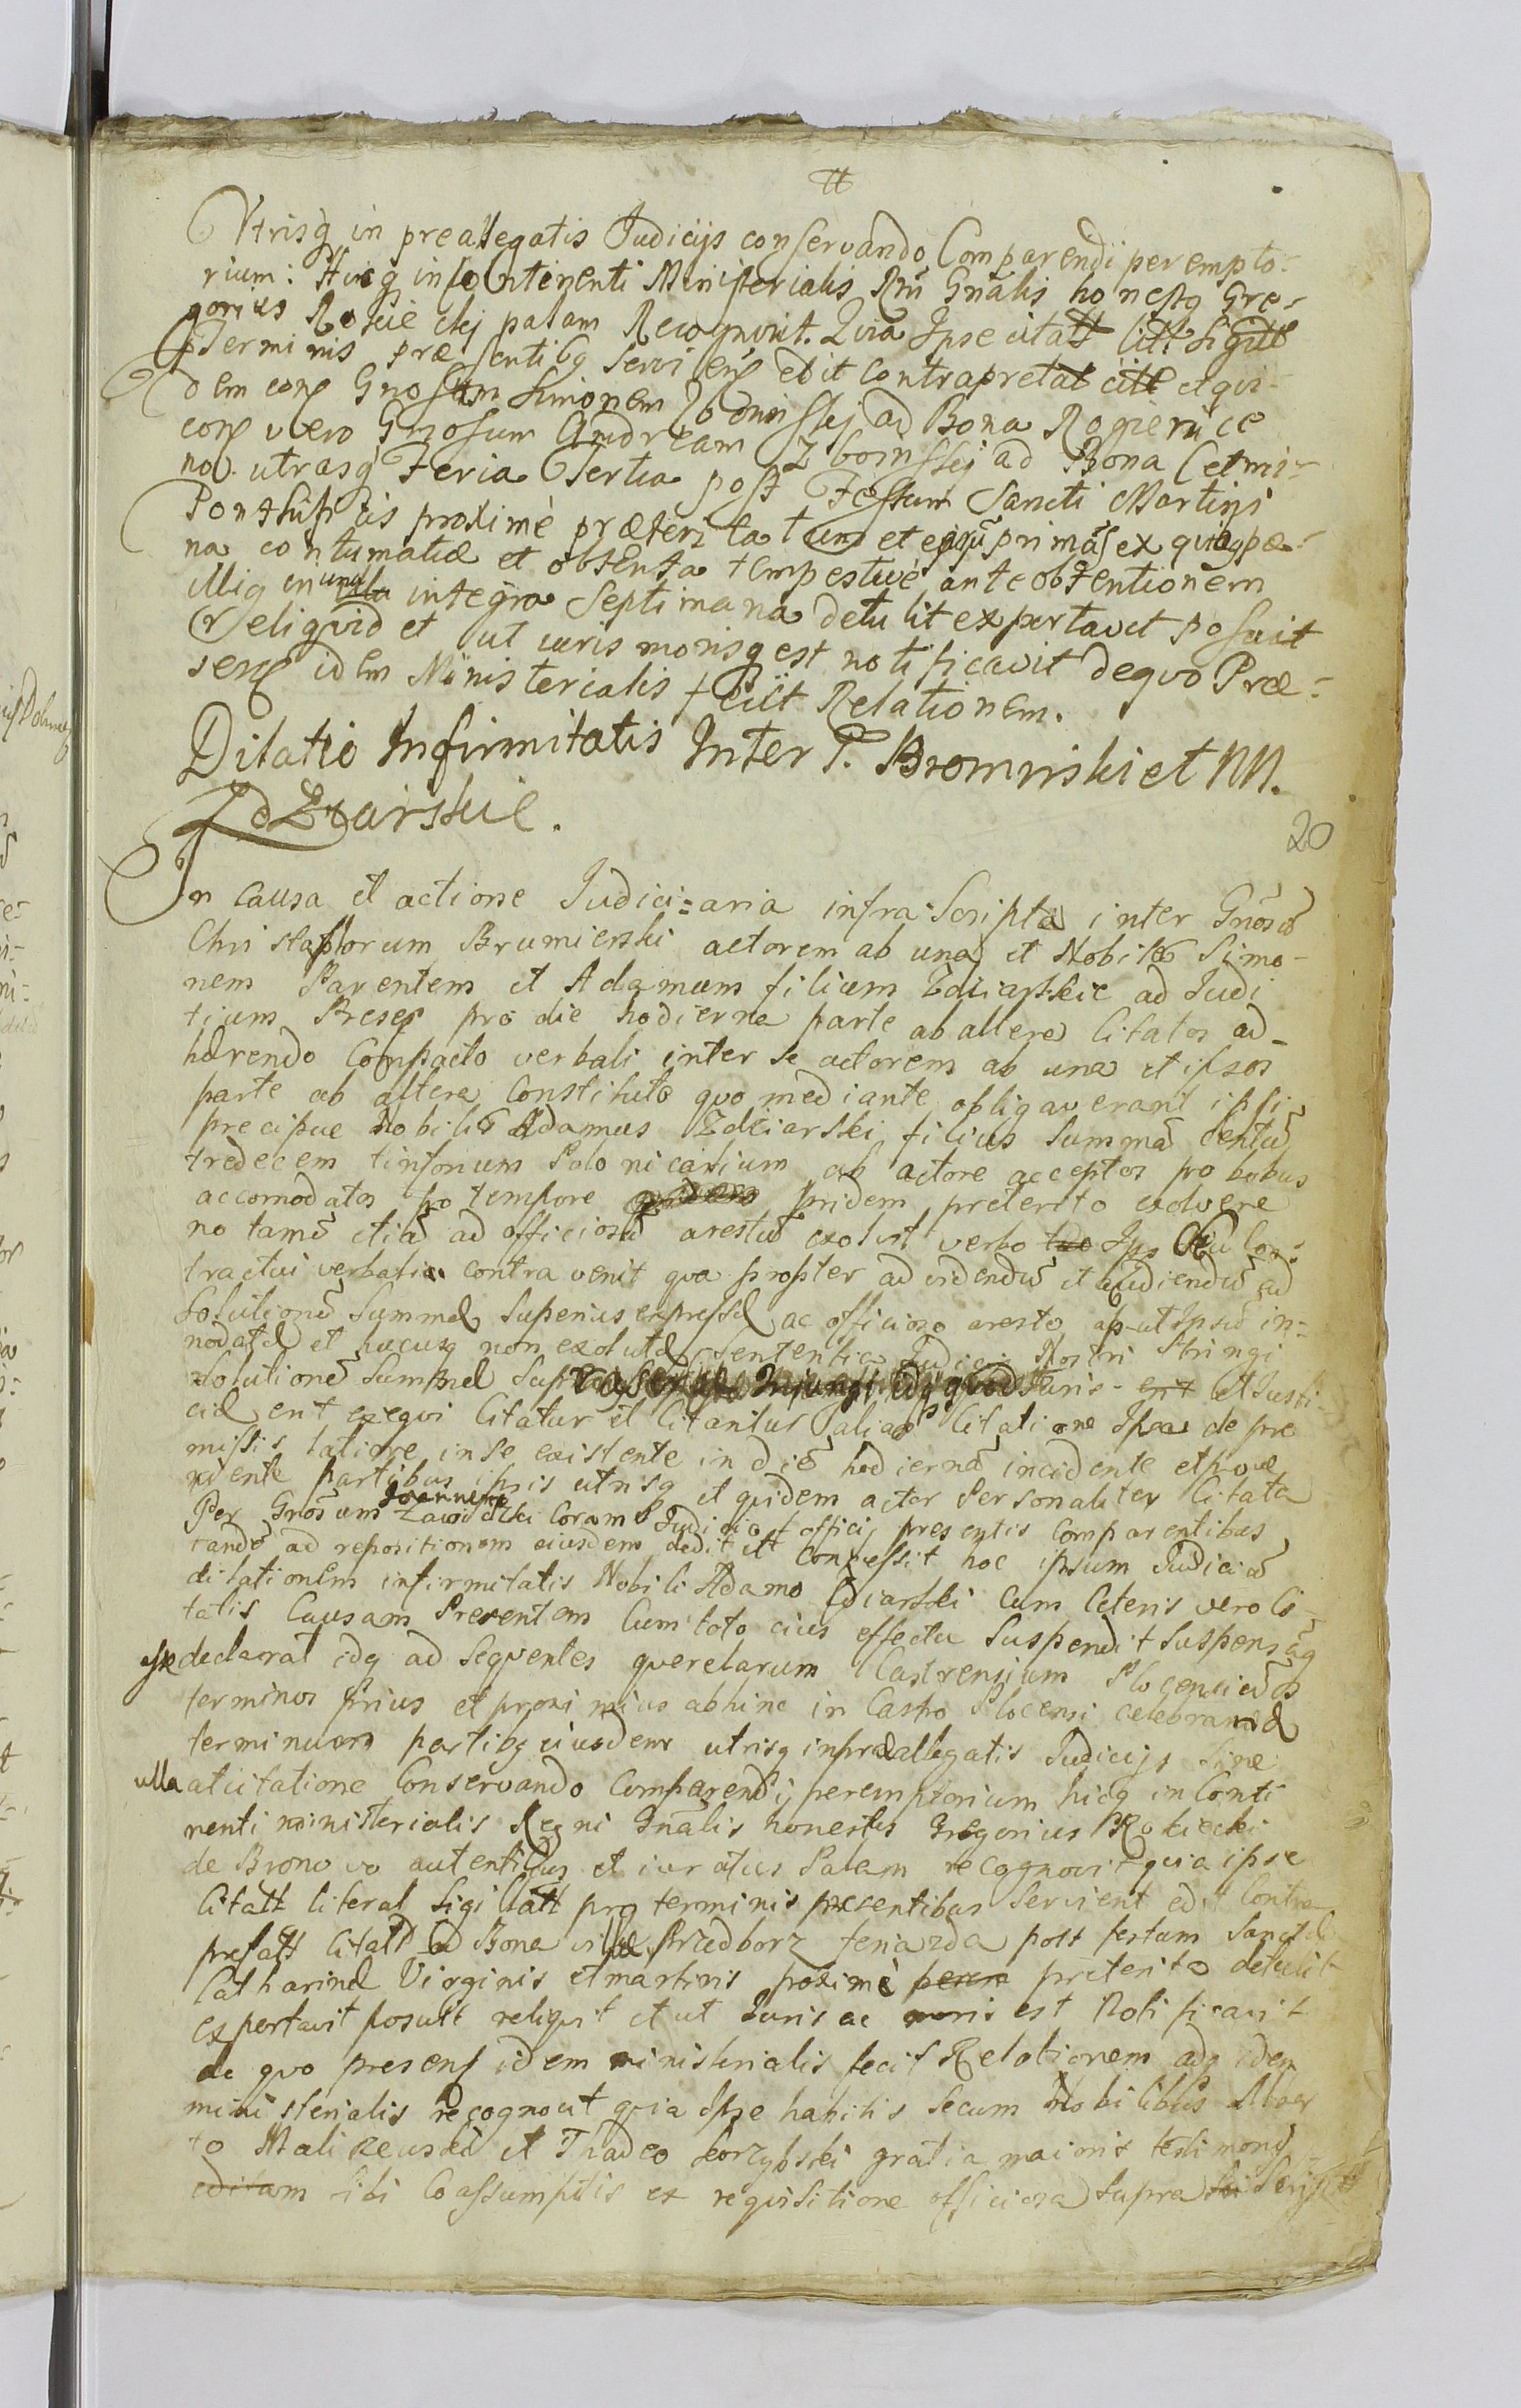 tt
Vtrisq in preallegatis Iudicijs conservando Comparendi perempto-
rium: Hicq in Continenti Ministerialis Rni Gnalis honestq Gre-
gorius Rokie ckj palam Recognovit. Quia Ipse citatt litt Sigill
Terminis præsentibq Servi ens edit contra pretat citt et qui-
dem cons Gnosum Simonem ad Bona Rogienice
cons vero Gnosum Andream Zboinskj ad Bona Cetmi-
no. utrasq Feria Tertia post Festum Sancti Martini
Pontificis proximè præterita tum et primas ex
na contumatiæ et obtenta tempestivè ante obtentionem
illiq in una integra Septimana detulit expertavit posuit
Reliquid et ut iuris morisq est notificavit de quo Præ-
sens idem Ministerialis feicit Relationem.
Dilatio Infirmitatis Inter P. Bromirski et NN.
Zdziarskie.
20
In Causa et actione Iudici=aria infra Scripta inter Gnosũ
Christophorum Brumierski actorem ab una et Nobiles Simo-
nem Parentem et Adamum filium Zdziarskie ad Iudi
tium Preses pro die hodierna parte ab altera Citatos ad-
hærendo Compacto verbali inter se actorem ab una et ipsos
parte ab altera Constituto quo mediante obligaverant ipsi
precipue Nobilis Adamus Zdziarski filius Summã Centũ
tredecem tinforum Polonicarium ab actore acceptos pro bobus
accomodatos pro tempore pridem preterito exolvere
no tamẽ etiã ad officiosũ arestũ exolvit verbo Ips Con-
tractui verbatim contra venit qua propter ad videndũ et audiendũ ad
Solutionẽ Summæ Superius expressæ ac officioso aresto aput Ipsũ in-
nodatæ et hucusq non exolutæ Sententia Iudicij Nostri Stringi
Solutionẽ Summæ Injungi idq quod Iuris et Iusti-
ciæ ent exequi Citatur et Citantur aliaõ Citatione Ipsa de pre
missis latiore in se existente in diẽ hodiernã incidente et
niente partibus ipsis utrisq et quidem actor Personaliter Citata
Per Gnosum Joannem Zawidzki Coram Iudicio officij presentis Comparentibus
tandẽ ad repositionem eiusdem dedit et Concessit hoc ipsum Iudiciũ
dilationem infirmitatis Nobili Adamo Zdziarski Cum Ceteris vero Ci-
tatis Causam Presentem Cum toto eius effectu Suspendit Suspensãq
esse declarat idq ad Sequentes querelarum Castrensium Plocensiũ
terminos prius et proximius abhinc in Castro Plocensi celebrandæ
terminum partibq eiusdem utrisq in præallegatis Iudicijs Sine
ulla at citatione Conservando Comparendij peremptorium hicq in Conti
nenti ministerialis Regni Gnalis honestus Gregorius Rokiecki
de Bronowo autenticus et iuratus Palam recognovit quia ipse
Citatt literal Sigillatt pro terminis presentibus Servient edit Contra
prefatt Citatt ad Bona villæ Przedborz feria 2da post festum Sanctæ
Catharinæ Virginis et martiris proximè preterito detulit
expertavit posuit reliquit et ut Iuris ac moris est Notificavit
de quo presens idem ministerialis fecit Relationem adq idem
ministerialis recognovit quia Ipse habitis Secum Nobilibus Alber
to Malizewski et Thadeo Skorzybski gratia maioris testimonij
sibi Coassumptis ex requisitione officiosa Supra Script